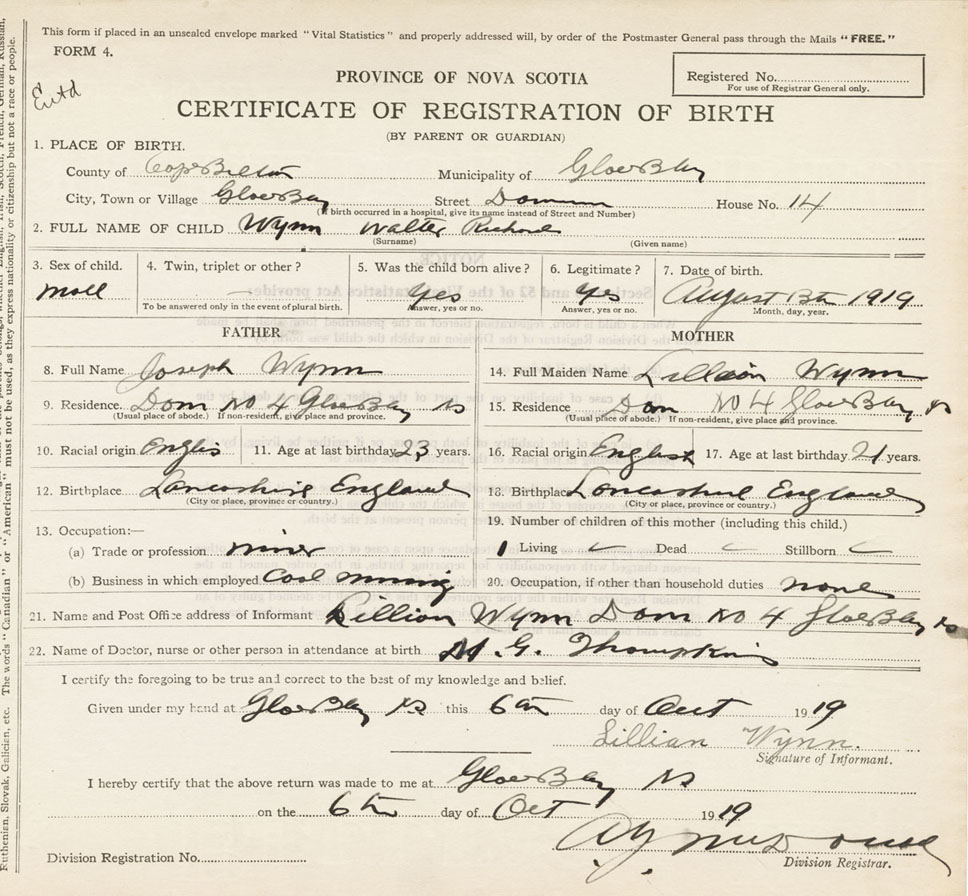 This form if placed in an unsealed envelope marked "Vital Statistics" and properly addressed will, by order of the Postmaster General pass through the Mails "FREE."
FORM 4.
Entd
PROVINCE OF NOVA SCOTIA
Registered No.
For use of Registrar General only.
CERTIFICATE OF REGISTRATION OF BIRTH
(BY PARENT OR GUARDIAN)
1. PLACE OF BIRTH.
County of Cape Breton Municipality of Glace Bay
City, Town or Village Glace Bay Street House No. 14
(If birth occurred in a hospital, give its name instead of Street and Number)
2. FULL NAME OF CHILD Wynn Walter Richard
(Surname) (Given name)
3. Sex of child. 4. Twin, triplet or other? 5. Was the child born alive? 6. Legitimate? 7. Date of birth.
Male — Yes Yes August 1919
To be answered only in the event of plural birth. Answer, yes or no. Answer, yes or no. Month, day, year.
FATHER MOTHER
8. Full Name Joseph Wynn 14. Full Maiden Name Lillian Wynn
9. Residence Dom No 4 Glace Bay NS 15. Residence Dom No 4 Glace Bay NS
(Usual place of abode.) If non-resident, give place and province. (Usual place of abode.) If non-resident, give place and province.
10. Racial origin Englis 11. Age at last birthday 23 years. 16. Racial origin English 17. Age at last birthday 21 years.
12. Birthplace Lancashire England 18. Birthplace Lancashire England
(City or place, province or country.) (City or place, province or country.)
13. Occupation:— 19. Number of children of this mother (including this child.)
(a) Trade or profession miner 1 Living Dead Stillborn
(b) Business in which employed Coal mining 20. Occupation, if other than household duties none
21. Name and Post Office address of Informant Lillian Wynn Dom No 4 Glace Bay NS
22. Name of Doctor, nurse or other person in attendance at birth M. G. Thompkins
I certify the foregoing to be true and correct to the best of my knowledge and belief.
Given under my hand at Glace Bay NS this 6th day of Oct 1919
Lillian Wynn.
Signature of Informant.
I hereby certify that the above return was made to me at Glace Bay NS
on the 6th day of Oct 1919
Division Registration No. Division Registrar.